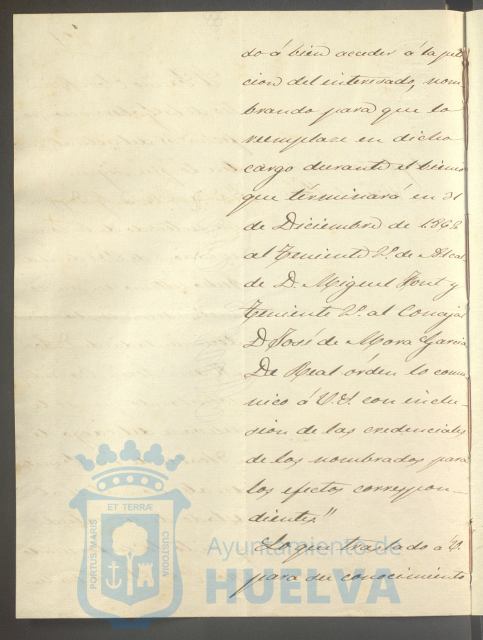 do á bien acceder á la peti
cion del interesado, nom
brando para que lo
reemplace en dicho
cargo durante el bienio
que terminará en 31
de Diciembre de 1868
al Teniente 2º de Alcal
de D. Miguel Font y
Teniente 2º al Concejal
D José de Mora Garcia
De Real órden lo comu
nico á V.S. con inclu-
sion de las credenciales
de los nombrados para
los efectos correspon-
dientes"
Lo que traslado á V.
para su conocimiento
PORTUS MARIS
ET TERRÆ
CUSTODIA
Ayuntamiento de
HUELVA